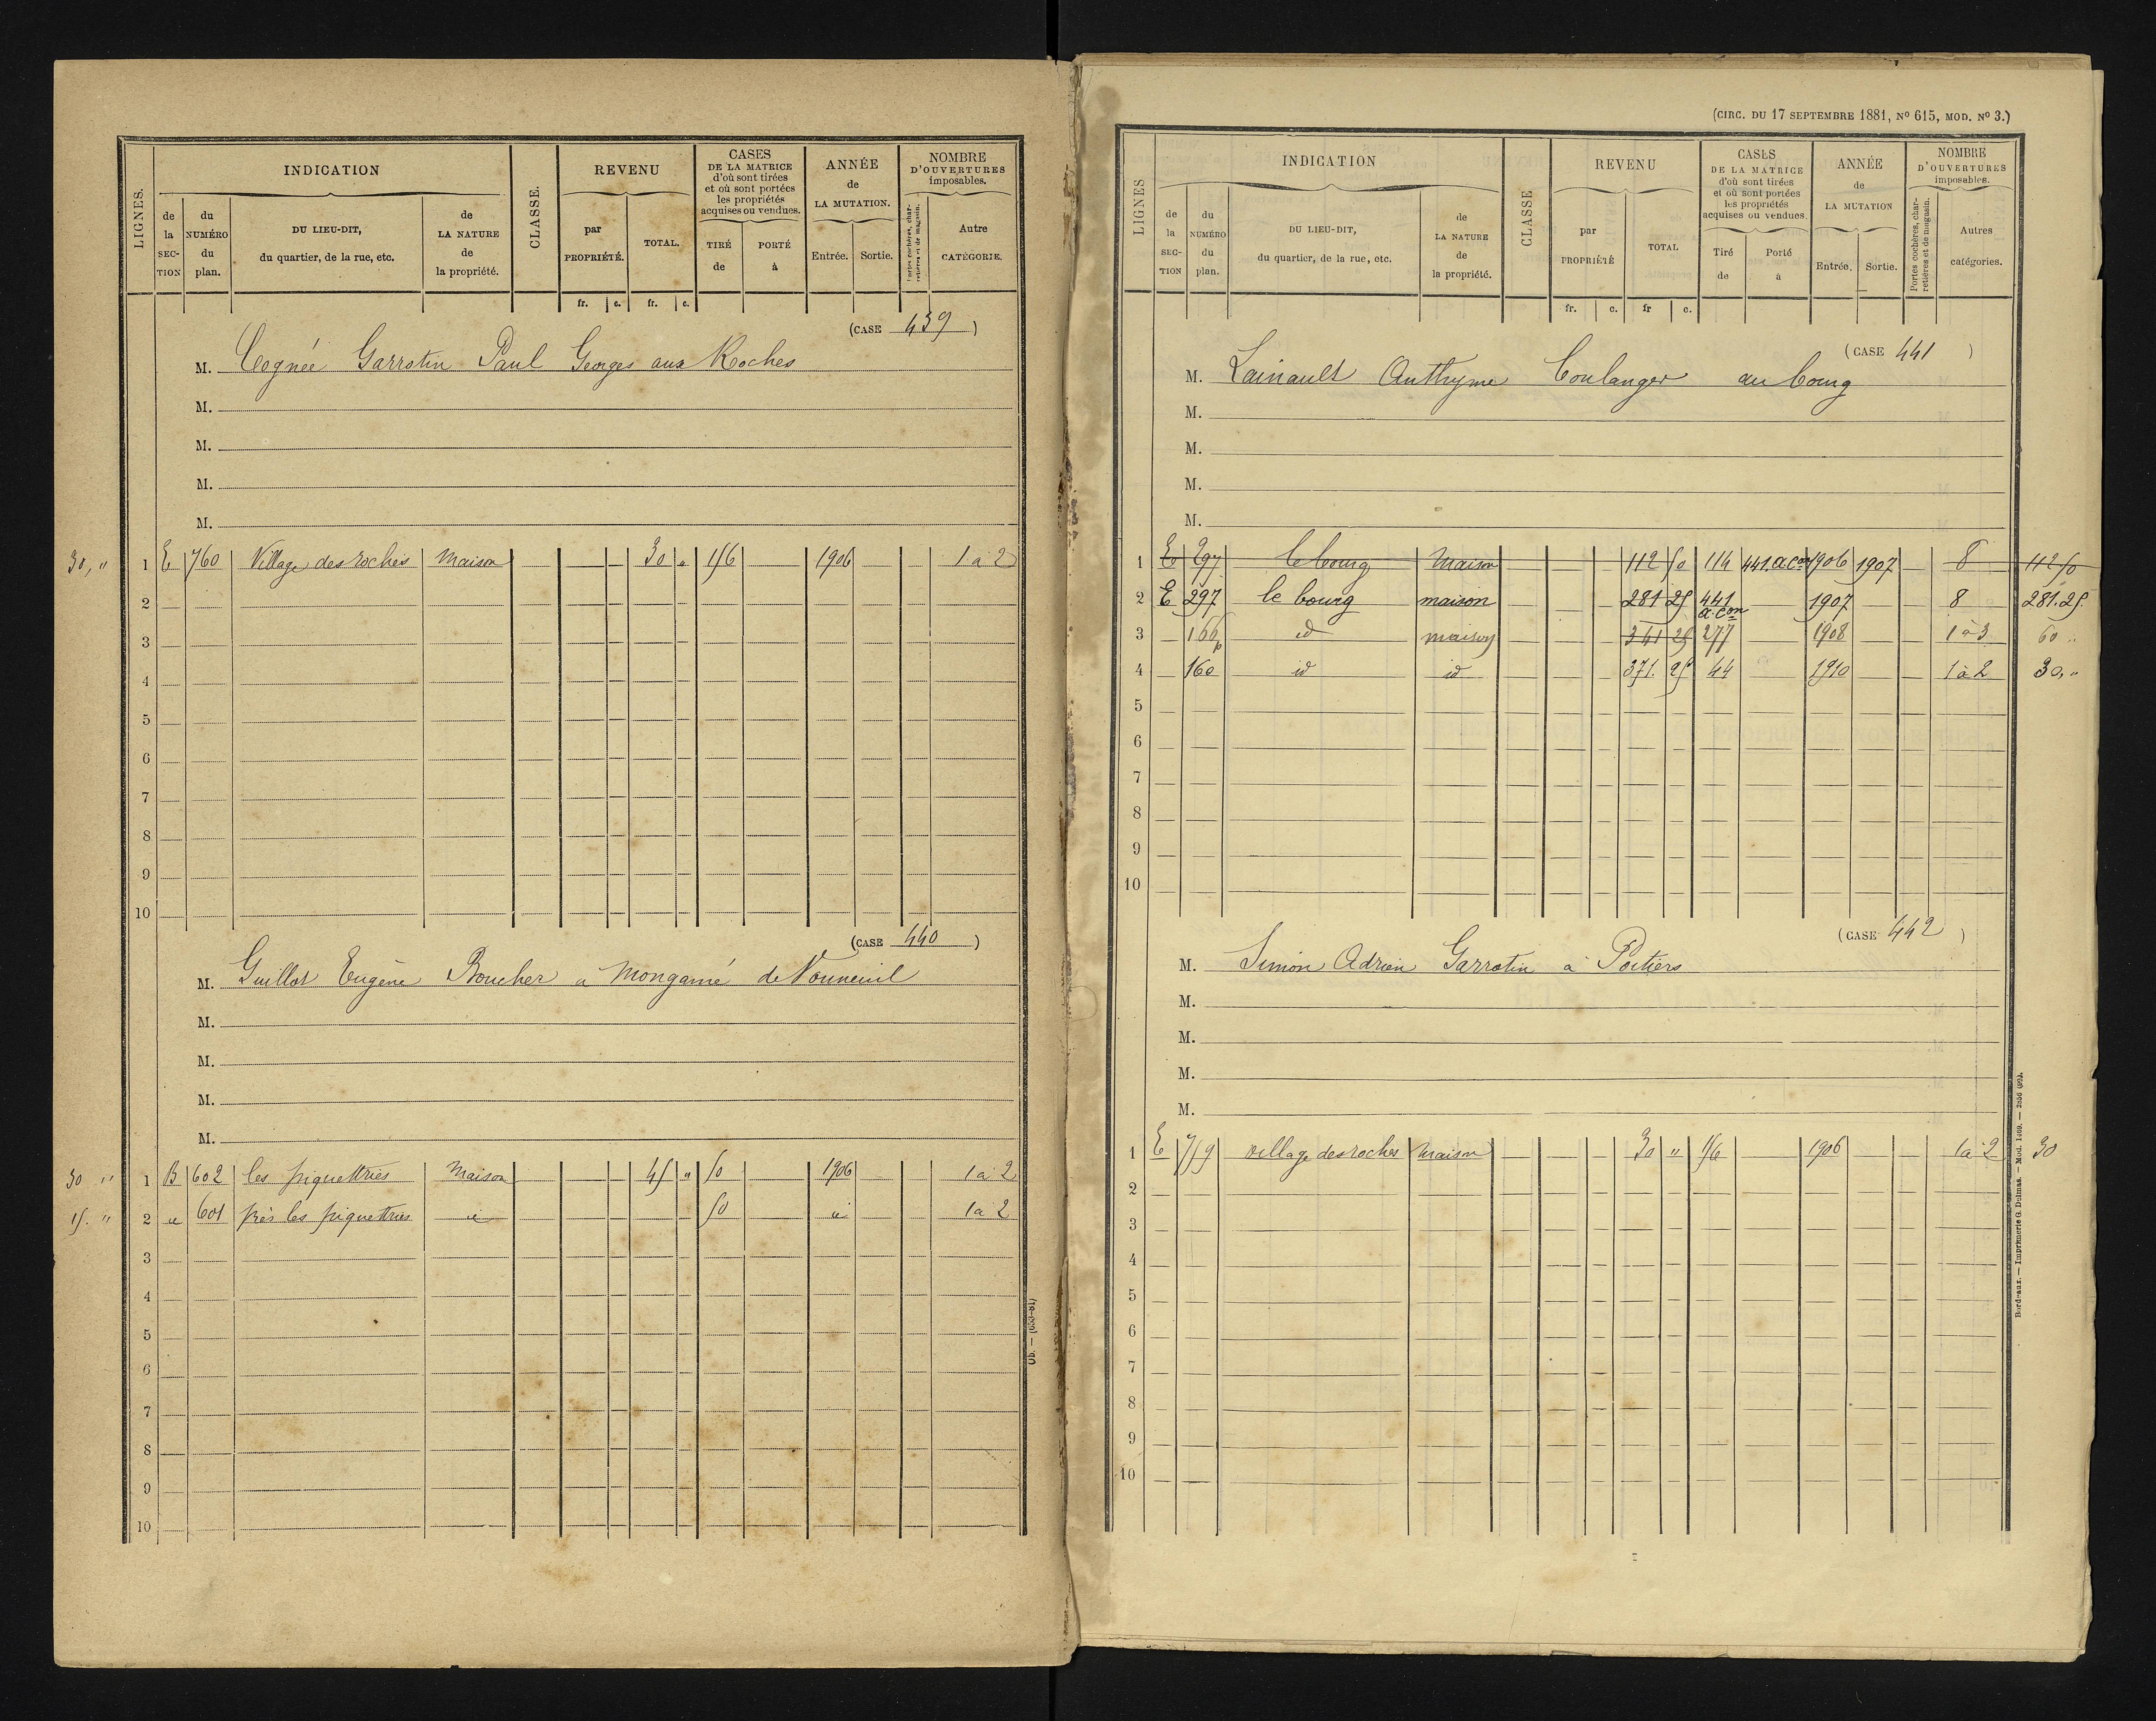 LIGNES.
INDICATION
de la SECTION
du NUMÉRO du plan.
DU LIEU-DIT, du quartier, de la rue, etc.
de LA NATURE de la propriété.
CLASSE.
REVENU
par PROPRIÉTÉ.
TOTAL.
CASES DE LA MATRICE d'où sont tirées et où sont portées les propriétés acquises ou vendues.
TIRÉ de
PORTÉ à
ANNÉE de LA MUTATION.
Entrée. Sortie.
NOMBRE D'OUVERTURES imposables.
Portes cochères, charretières et de magasin.
Autre CATÉGORIE.
fr. c. fr. c.
(CASE 439)
M. Cognée Garrotin Paul Georges aux Roches
M.
M.
M.
M.
30, " 1 E 760 Village des roches Maison 30 " 156 1906 1 à 2
2
3
4
5
6
7
8
9
10
(CASE 440)
M. Guillot Eugène Boucher à Mongamé de Vouneuil
M.
M.
M.
M.
30 " 1 B 602 les piquettries Maison 45 " 50 1906 1 à 2
15. " 2 " 601 près les piquettries 50 1 à 2
3
4
5
6
7
8
9
10
(CIRC. DU 17 SEPTEMBRE 1881, No 615, MOD. No 3.)
LIGNES
INDICATION
de la SECTION
du NUMÉRO du plan.
DU LIEU-DIT, du quartier, de la rue, etc.
de LA NATURE de la propriété.
CLASSE
REVENU
par PROPRIÉTÉ
TOTAL
CASES DE LA MATRICE d'où sont tirées et où sont portées les propriétés acquises ou vendues.
Tiré de
Porté à
ANNÉE de LA MUTATION
Entrée. Sortie.
NOMBRE D'OUVERTURES imposables.
Portes cochères, charretières et de magasin.
Autres catégories.
fr. c. fr c.
(CASE 441)
M. Lainault Anthyme boulanger au bourg
M.
M.
M.
M.
1 E 297 le bourg Maison 112 50 114 441. a. con 1906 1907 8 112 50
2 E 297 le bourg maison 281 25 441 a. con 1907 8 281. 25.
3 166 p id maison 341 25 277 1908 1 à 3 60 "
4 160 id id 371. 25 44 1910 1 à 2 30, "
5
6
7
8
9
10
(CASE 442)
M. Simon Adrien Garrotin à Poitiers
M.
M.
M.
M.
1 E 759 village des roches Maison 30 " 156 1906 1 à 2 30
2
3
4
5
6
7
8
9
10
Bordeaux. — Imprimerie G. Delmas. — Mod. 1469. —